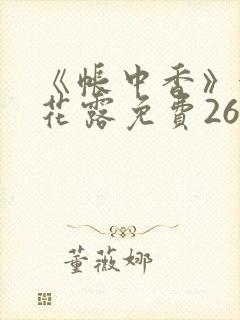 《帐中香》
花露免費26
董薇娜